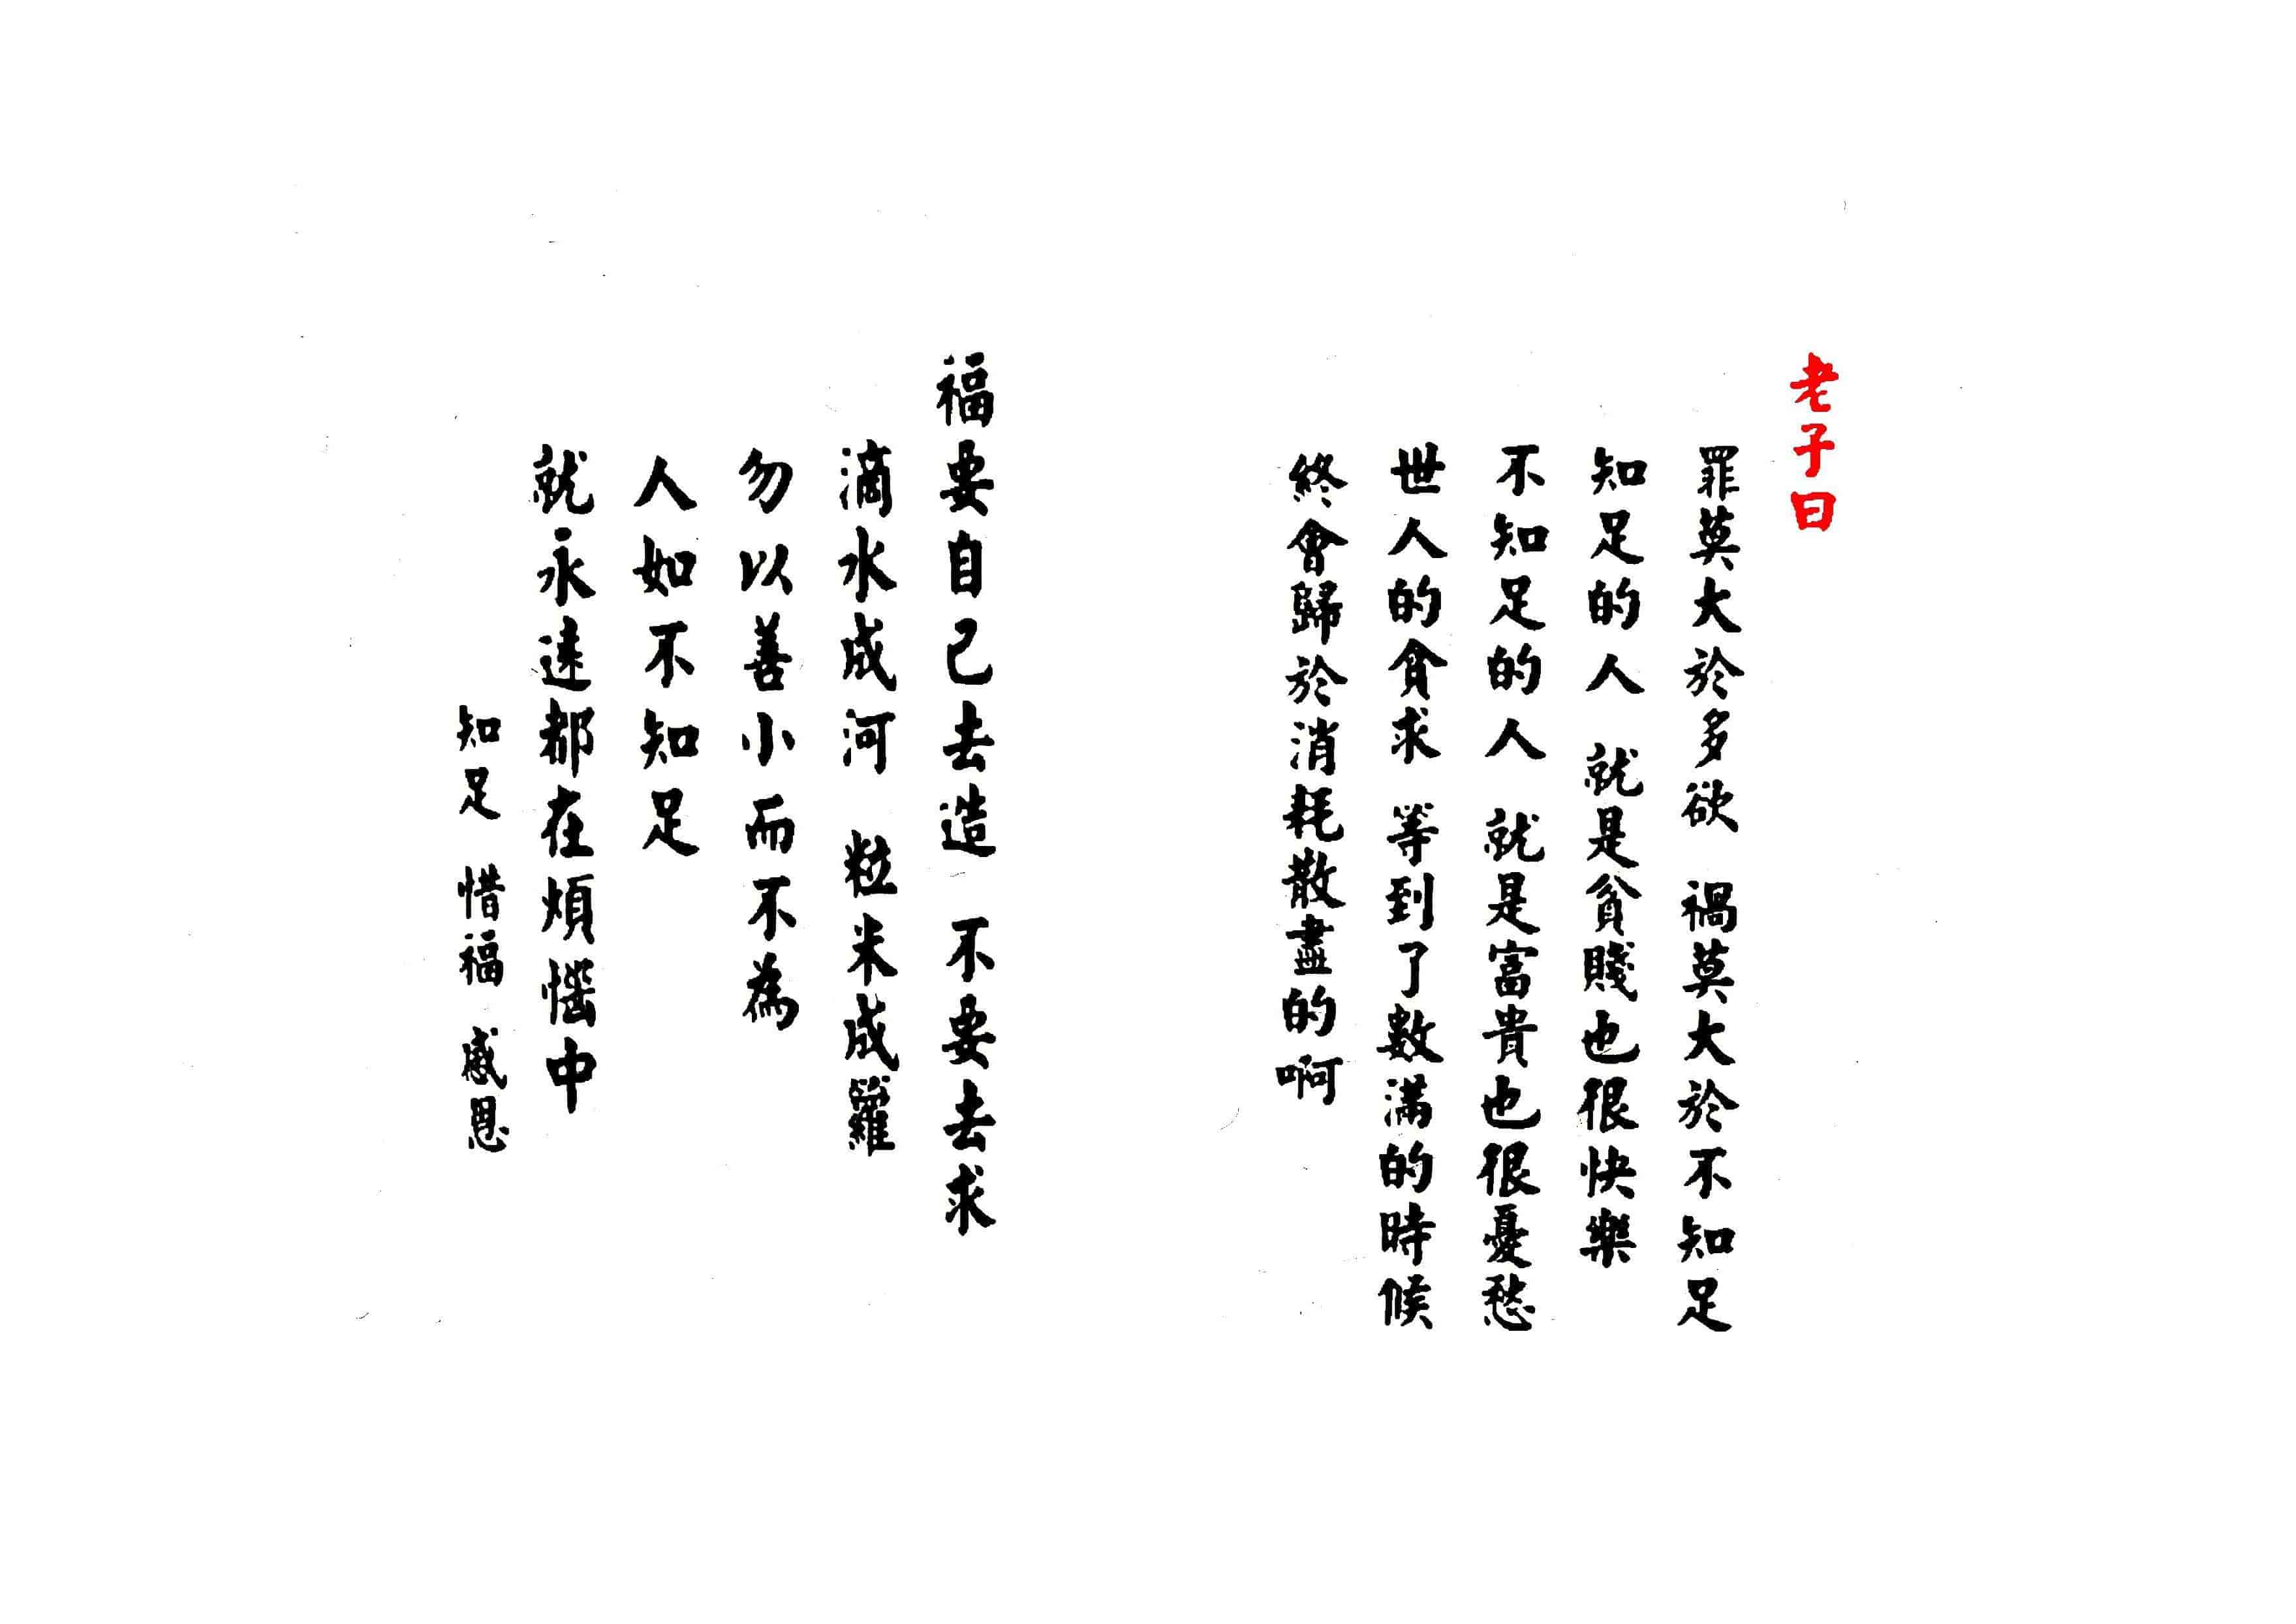 老子曰
罪莫大於多欲 禍莫大於不知足
知足的人 就是貧賤也很快樂
不知足的人 就是富貴也很憂愁
世人的貪求 等到了數滿的時候
終會歸於消耗散盡的啊
福要自己去造 不要去求
滴水成河 粒米成籮
勿以善小而不為
人如不知足
就永遠都在煩惱中
知足 惜福 感恩